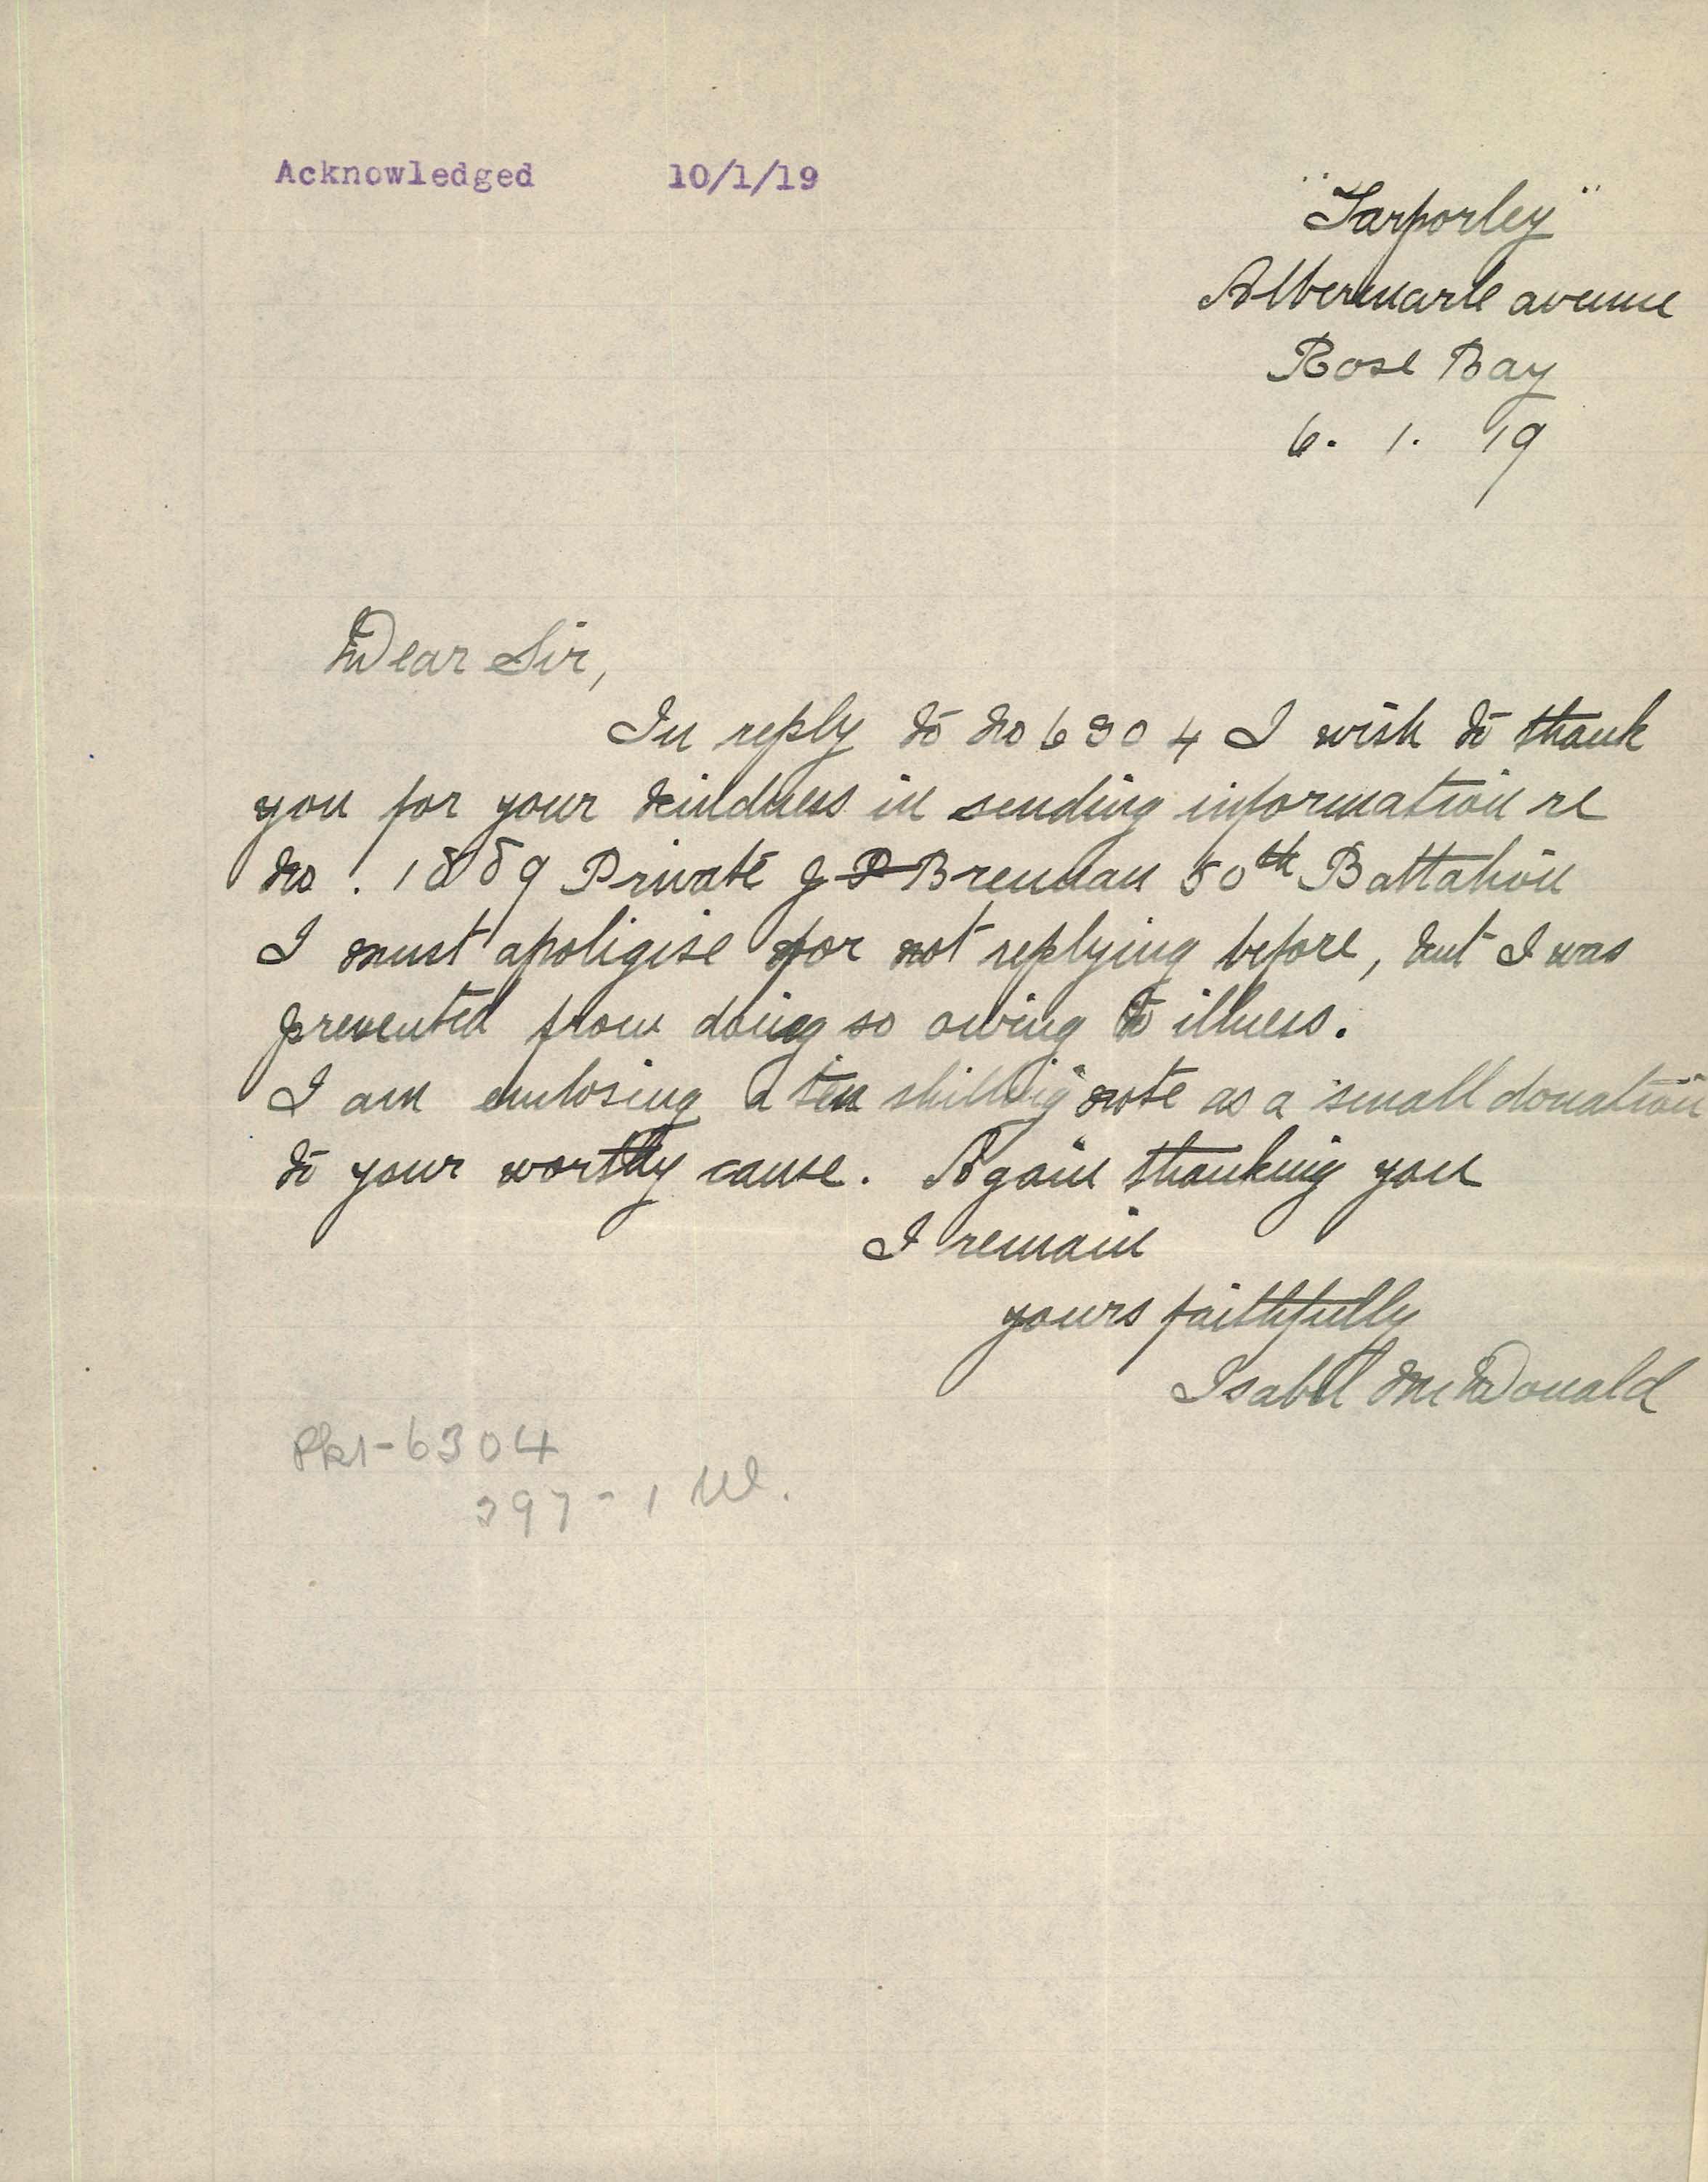 Acknowledged 10/1/19
"Tarporley"
Albermarle avenue
Rose Bay
6. 1. 19
Dear Sir,
In reply to No 6304 I wish to thank
you for your kindness in sending information re
No. 1889 Private J P Brennan 50th Battalion
I must apoligise for not replying before, but I was
prevented from doing so owing to illness.
I am enclosing a ten shilling note as a small donation
to your worthy cause. Again thanking you
I remain
yours faithfully
Isabel McDonald
Pkt-6304
397-1